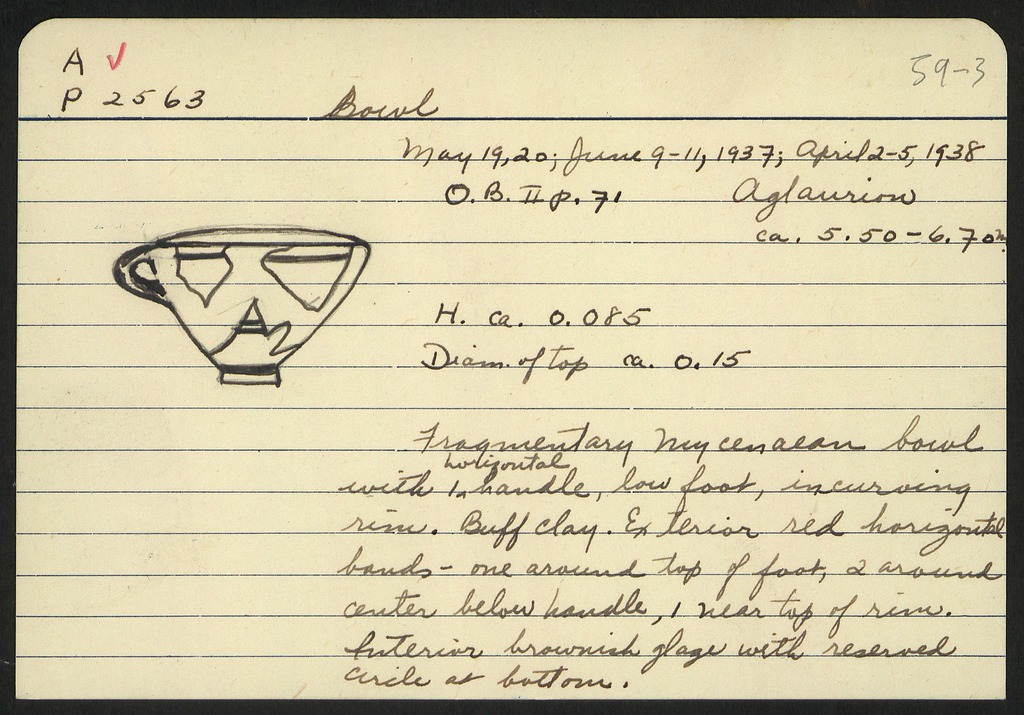 A ✓
59-3
P 2563
Bowl
May 19, 20; June 9-11, 1937; April 2-5, 1938
O.B. II p. 71 Aglaurion
ca. 5.50 - 6.70 m
A
H. ca. 0.085
Diam. of top ca. 0.15
Fragmentary Mycenaean bowl
horizontal
with 1 handle, low foot, incurving
rim. Buff clay. Exterior red horizontal
bands - one around top of foot, 2 around
center below handle, 1 near top of rim.
Interior brownish glaze with reserved
circle at bottom.